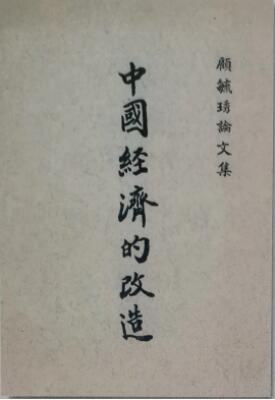 顧毓琇論文集
中國経濟的改造